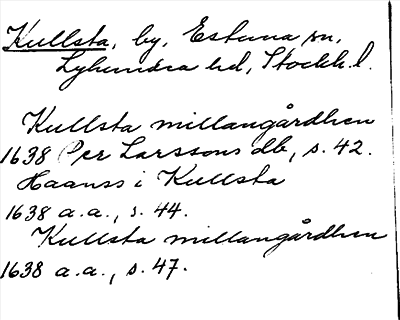 Kullsta, by, Estuna sn,
Lyhundra hd, Stockh. l.
Kullsta millangårdhen
1638 Per Larssons db, s. 42.
Haanss i Kullsta
1638 a.a., s. 44.
Kullsta millangårdhen
1638 a.a., s. 47.